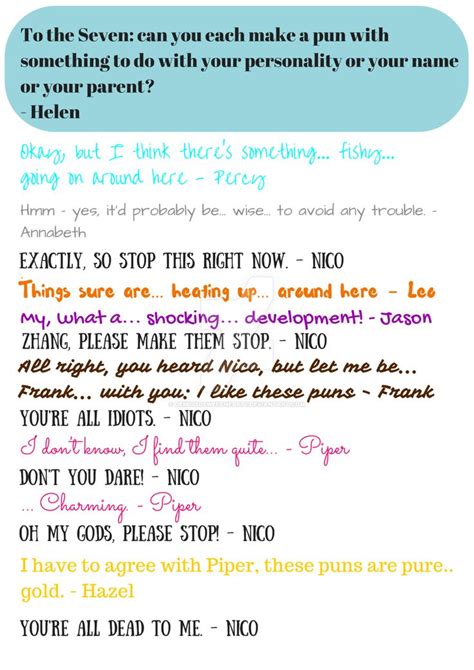 To the Seven: can you each make a pun with
something to do with your personality or your name
or your parent?
- Helen
Okay, but I think there's something... fishy...
going on around here - Percy
Hmm - yes, it'd probably be... wise... to avoid any trouble. -
Annabeth
EXACTLY, SO STOP THIS RIGHT NOW. - NICO
Things sure are... heating up... around here - Leo
My, what a... shocking... development! - Jason
ZHANG, PLEASE MAKE THEM STOP. - NICO
All right, you heard Nico, but let me be...
Frank... with you: I like these puns - Frank
YOU'RE ALL IDIOTS. - NICO
I don't know, I find them quite... - Piper
DON'T YOU DARE! - NICO
... Charming. - Piper
OH MY GODS, PLEASE STOP! - NICO
I have to agree with Piper, these puns are pure..
gold. - Hazel
YOU'RE ALL DEAD TO ME. - NICO